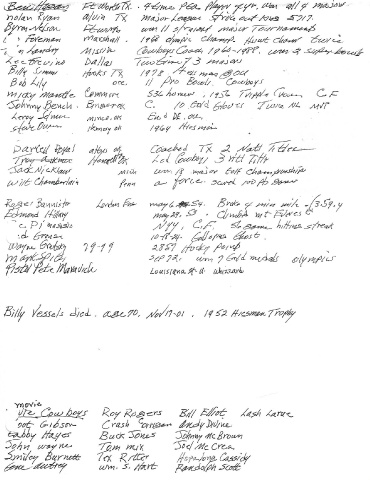 Ben Hogan Ft Worth TX. 4 time PGA Player year. won all 4 majors
Nolan Ryan Alvin TX Major League Strike out king 5717.
Byron Nelson Ft worth won 11 straight major Tournaments
Foreman Marshall. 1968 Olympic Champ Hvwt Champ Twice
Tom Landry Mission Cowboys Coach 1960-1988. won 2 super bowls
Lee Trevino Dallas Two time 3 majors
Billy Simms Hooks TX 1978 Heisman
Bob Lily 11 Pro Bowls Cowboys
Micky Mantle Commerce 536 homers. 1956 Tripple Crown C.F
Johnny Bench. Binger OK C. 10 Gold Gloves Twice NL MVP
Leroy Selmon End DE.
Steve Owens 1969 Heisman
Darrell Royal Coached TX 2 Natl Titles
Troy Aikman Led Cowboys 3
Jack Nicklaus won 18 major Golf championships
Wilt Chamberlain Penn a force scored 100 pts game
Roger Bannister London Eng may 6 54. Broke 4 min mile - (3:59.4
Edmond Hillary may 29. 53. Climbed mt Everest
NYY, C.F. 56 game hitting streak
Red Grange Galloping Ghost.
Wayne Gretzky 79-99 2857 Hocky points
Mark Spitz 1972. won 7 Gold medals olympics
Pistol Pete Maravich Louisiana
Billy Vessels died. age 70, Nov 17-01. 1952 Hiesman Trophy
movie
Cowboys Roy Rogers Bill Elliot Lash Larue
Gibson Crash Corrigan Andy Devine
Gabby Hayes Buck Jones Johnny McBrown
John Wayne Tom mix Joel McCrea
Smiley Burnett Tex Ritter Hopalong Cassidy
Gene Autrey Wm. S. Hart Randolph Scott